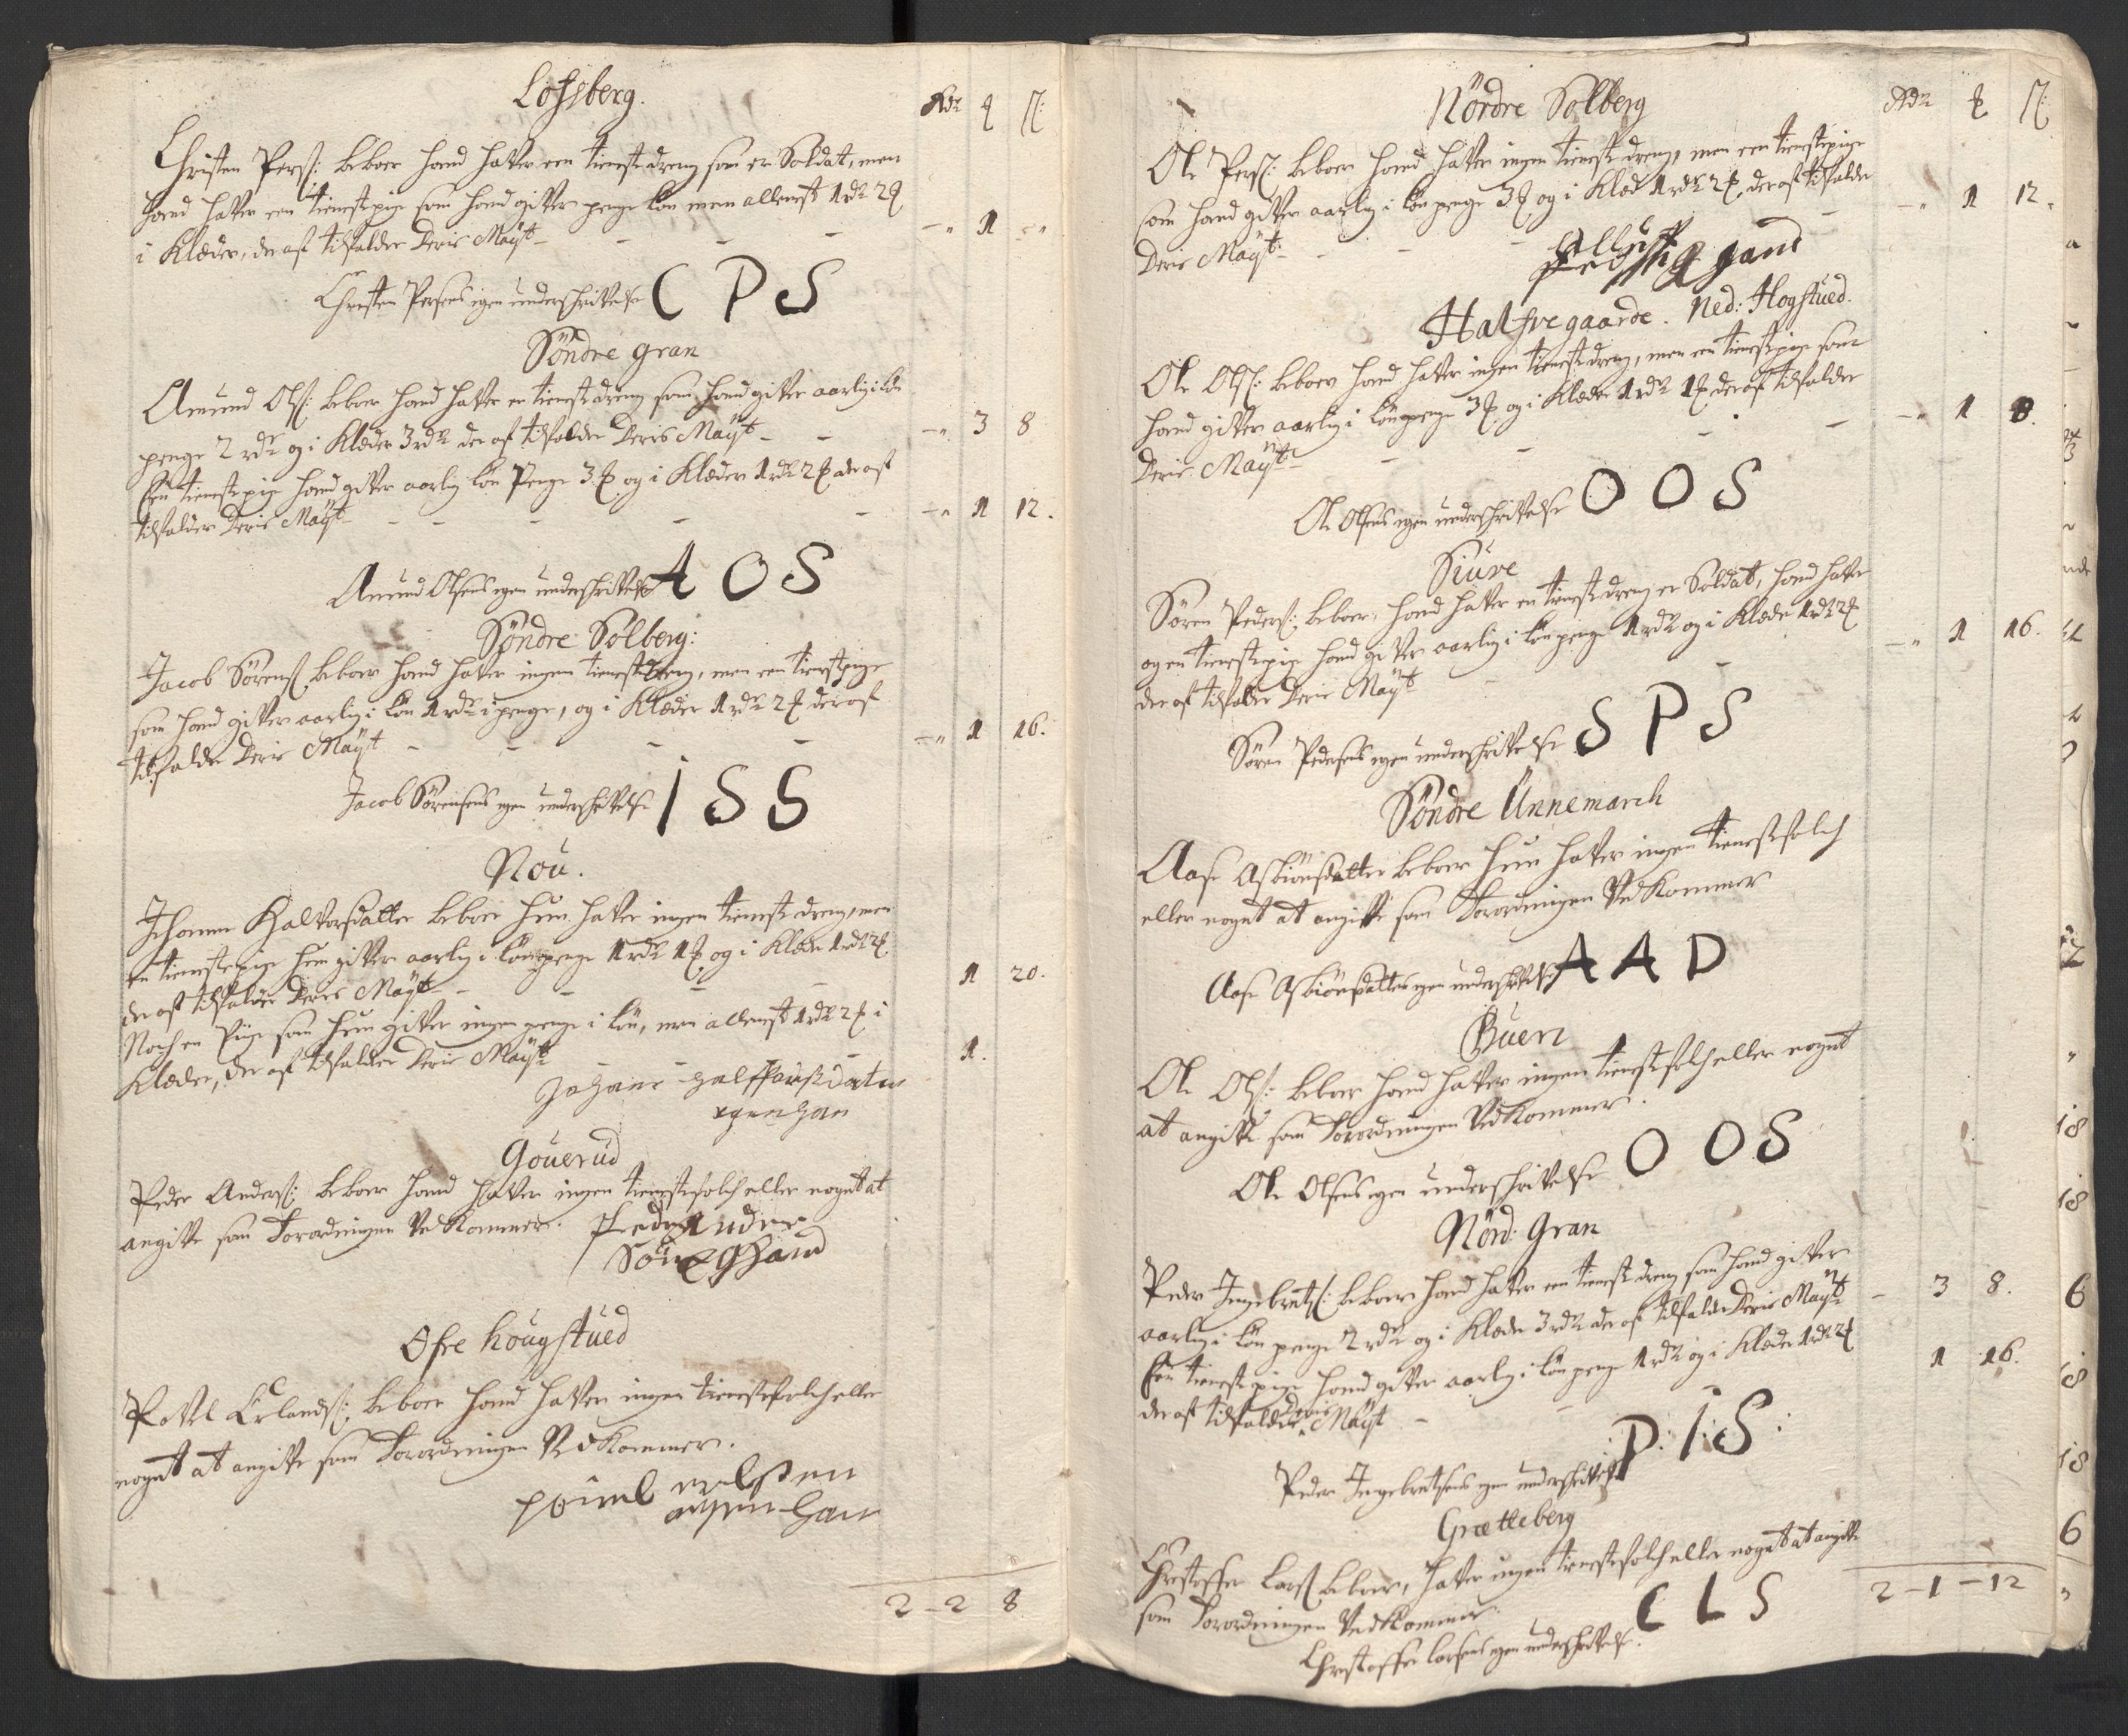 Lofsberg.
Rdr ₰ ß:
Christen Pers: beboer hand hafver een tieneste dreng som er Soldat, men
hand hafver een tienestepige som hand gifver penge løn men alleneste 1 rdr 2 ₰
i Klæder, der af tilfalder Deris Mayt - - - " 1 "
Christen Persens egen underschrifvelse C P S
Søndre gran
Amund Ols: beboer hand hafver en tieneste dreng som hand gifver aarlig i løn
penge 2 rdr og i Klæder 3 rdr der af tilfalder Deris Mayt - - " 3 8
Een tienestepige hand gifver aarlig løn Penge 3 ₰ og i Klæder 1 rdr 2 ₰ der af
tilfalder Deris Mayt - - - - " 1 12.
Amund Olsens egen underschrifvelse A O S
Søndre Solberg:
Jacob Sørens: beboer hand hafver ingen tieneste dreng, men een tienestpige
som hand gifver aarlig i løn 1 rdr i penge, og i Klæder 1 rdr 2 ₰ der af
tilfalder Deris Mayt - - - - " 1 16.
Jacob Sørensens egen underschrifvelse I S S
Nou.
Johanne Halvorsdatter beboer hun hafver ingen tieneste dreng, men
en tienestepige hun gifver aarlig i løn penge 1 rdr 1 ₰ og i Klæder 1 rdr 2 ₰
der af tilfalder Deris Mayt - - - - 1 20.
Noch en Pige som hun gifver ingen penge i løn, men alleneste 1 rdr 2 ₰ i
Klæder, der af tilfalder Deris Mayt - - - 1.
Johane Halffvorsdater
egen han
Gouerud
Peder Anders: beboer hand hafver ingen tienestefolch eller noget at
angifve som Forordningen Ved Kommer. Peder Ander
Søn egHand
Ofre hougstued
Pofvel Erlands: beboer hand hafver ingen tienestefolch eller
noget at angifve som Forordningen Ved Kommer.
2 - 2 8
Nordre Solberg
Rdr ₰ ß
Ole Pers: beboer hand hafver ingen tieneste dreng, men een tienestepige
som hand gifver aarlig i løn penge 3 ₰ og i Klæder 1 rdr 2 ₰ der af tilfalder
Deris Mayt: - - - - " 1 12.
Halfve gaarde. Ned: Hogstued.
Ole Ols: beboer hand hafver ingen tieneste dreng, men een tienestepige som
hand gifver aarlig i løn penge 3 ₰ og i Klæder 1 rdr 1 ₰ der af tilfalder
Deris Mayt - - - - " 1 8.
Ole Olsens egen underschrifvelse O O S
Siure
Søren Peders: beboer, hand hafver en tieneste dreng er Soldat, hand hafver
og en tienestepige hand gifver aarlig i løn penge 1 rdr og i Klæder 1 rdr 2 ₰
der af tilfalder Deris Mayt - - " 1 16.
Søren Pedersens egen underschrifvelse S P S
Søndre Unnemarch
Aase Asbiønsdatter beboer hun hafver ingen tienestefolch
eller noget at angifve som Forordningen Ved Kommer
Aase Asbiønsdatters egen underschrifvelse A A D
Buer
Ole Ols: beboer hand hafver ingen tienestefolch eller noget
at angifve som Forordningen Ved Kommer.
Ole Olsens egen underschrifvelse O O S
Nørd: Gran
Peder Ingebrets: beboer hand hafver een tieneste dreng som hand gifver
aarlig i løn penge 2 rdr og i Klæder 3 rdr der af tilfalder Deris Mayt - 3 8.
Een tienestepige hand gifver aarlig i løn penge 1 rdr og i Klæder 1 rdr 2 ₰
der af tilfalder Deris Mayt - 1 16.
Peder Ingebretsens egen underschrifvelse P: I: S:
Grætteberg
Christoffer Lars: beboer, hafver ingen tienestefolch eller noget at angifve
som Forordningen Ved Kommer.
Christoffer Larsens egen underschrifvelse. C L S
2 - 1 - 12